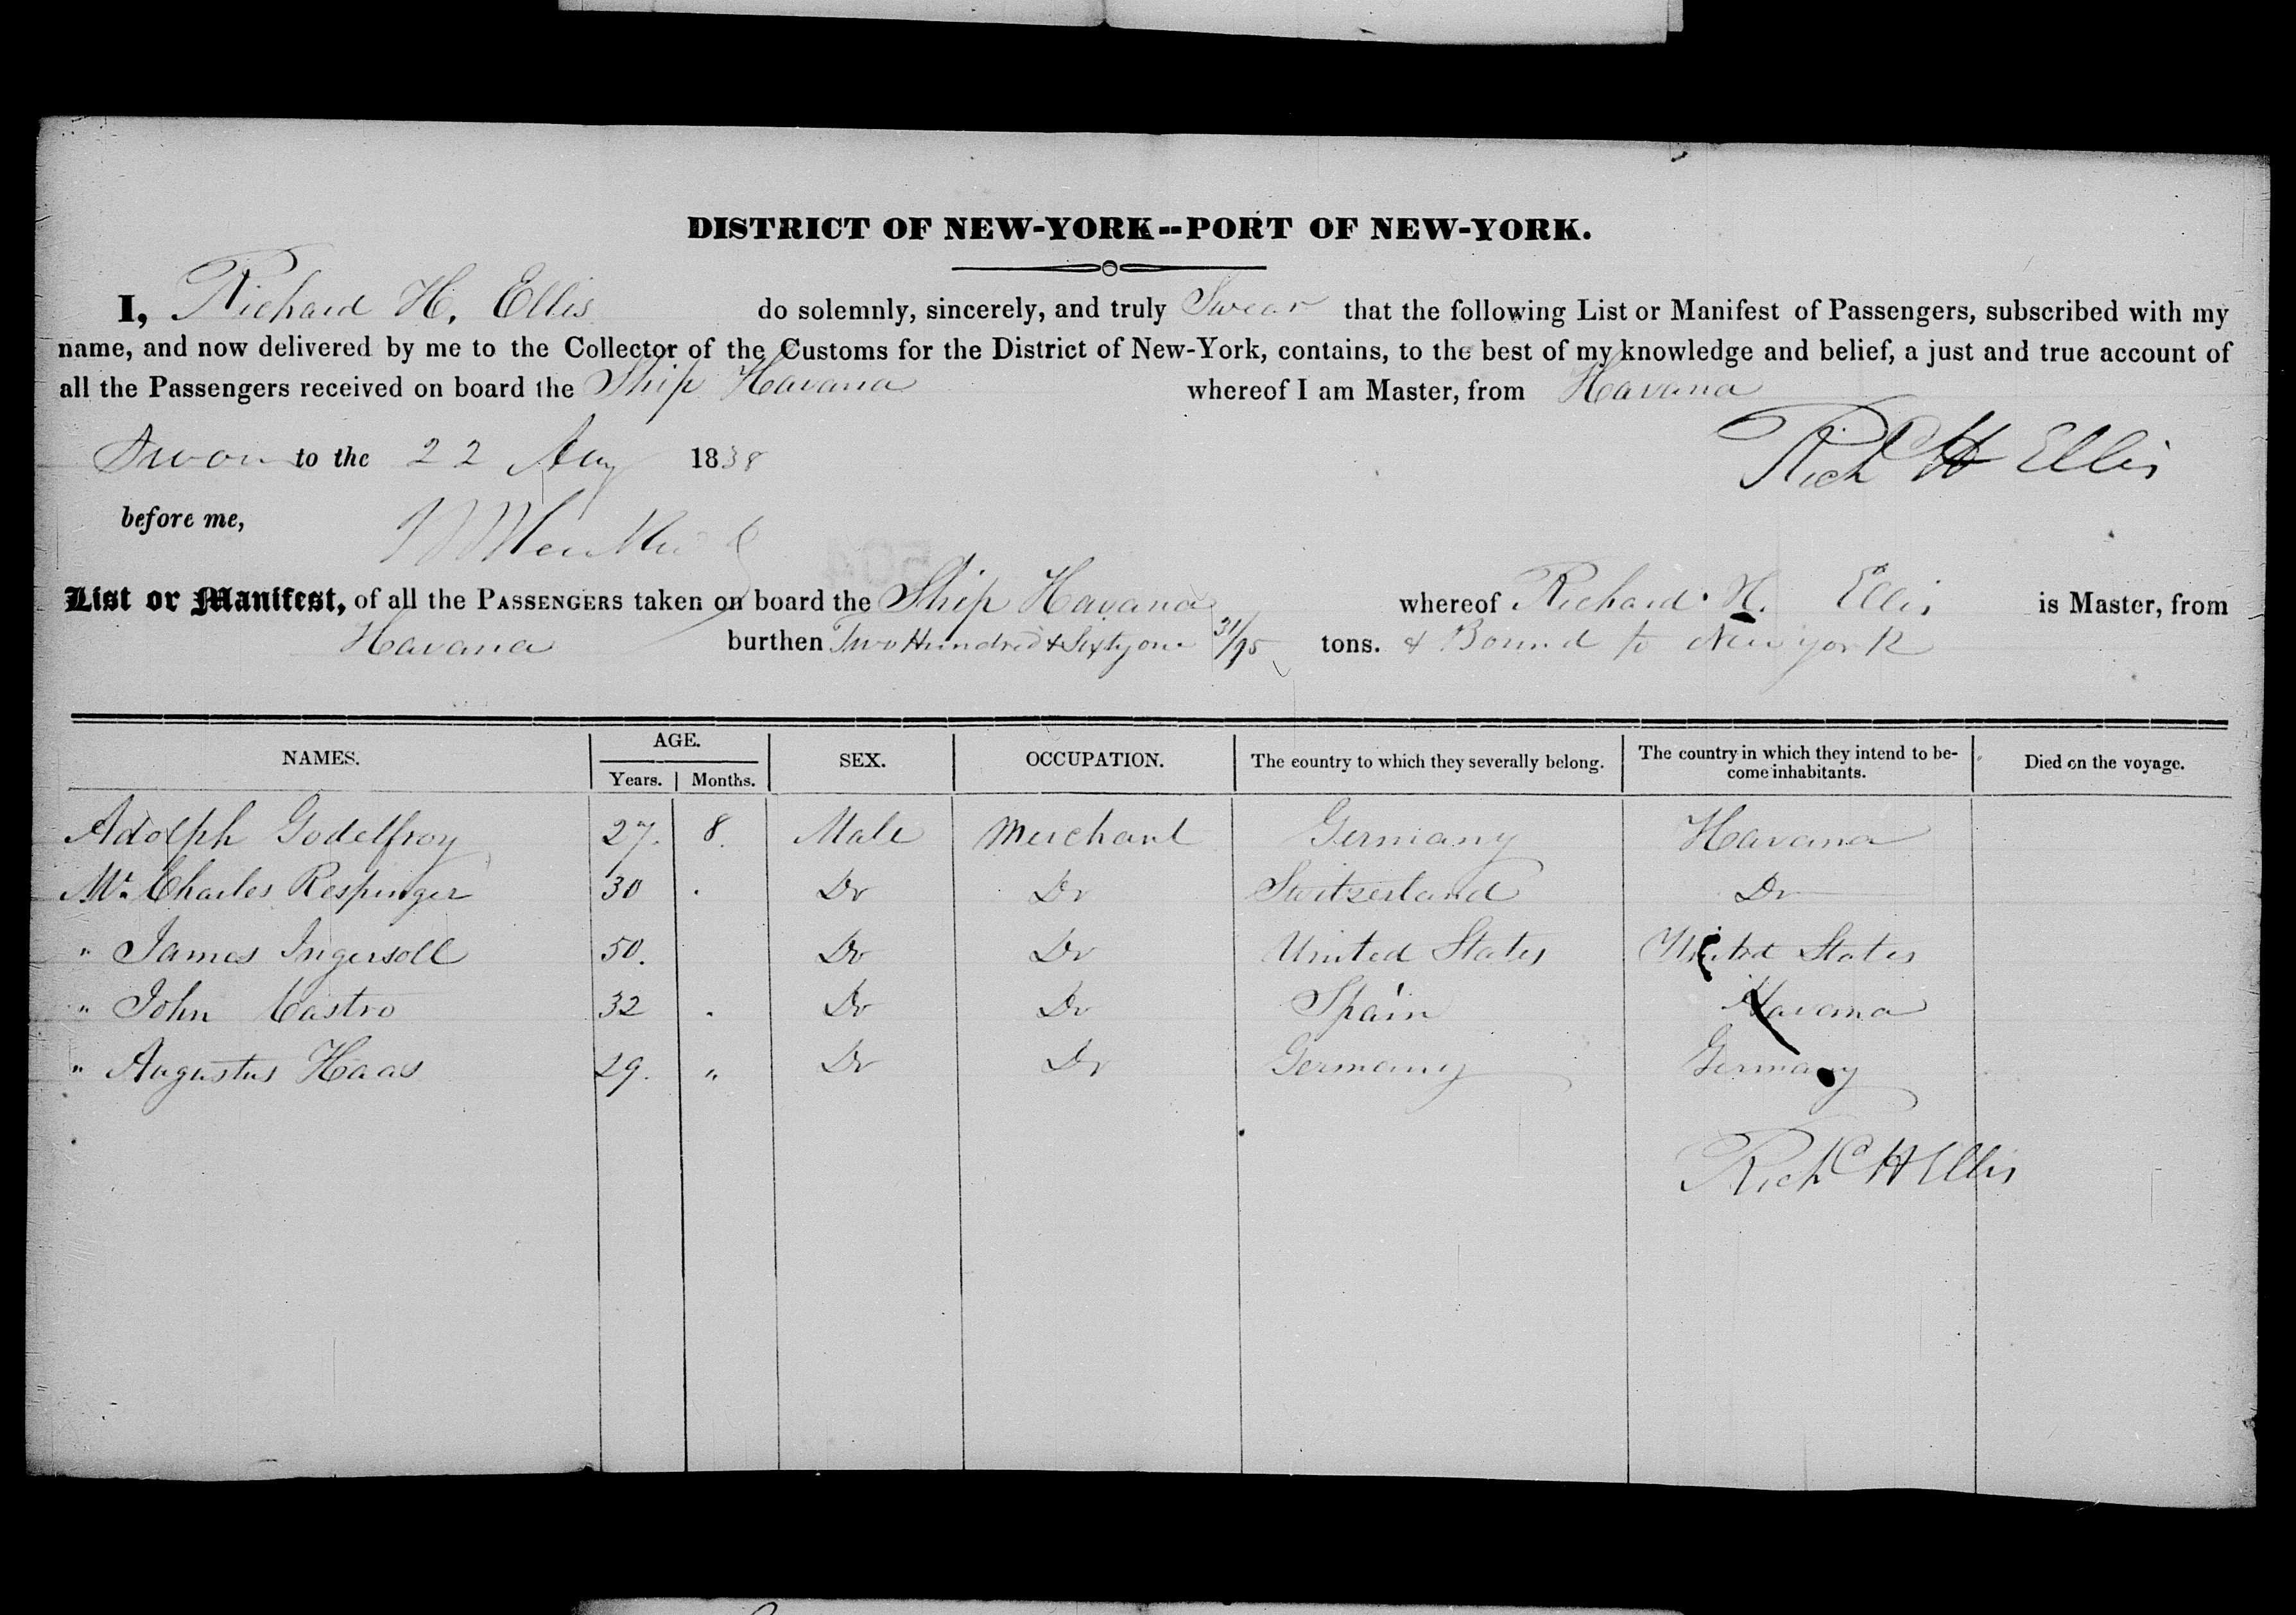 DISTRICT OF NEW-YORK--PORT OF NEW-YORK.
I, Richard H. Ellis do solemnly, sincerely, and truly Swear that the following List or Manifest of Passengers, subscribed with my
name, and now delivered by me to the Collector of the Customs for the District of New-York, contains, to the best of my knowledge and belief, a just and true account of
all the Passengers received on board the Ship Havana whereof I am Master, from Havana
Sworn to the 22 1838 Rich<sup>d</sup> H Ellis
before me,
List or Manifest, of all the PASSENGERS taken on board the Ship Havana whereof Richard H. Ellis is Master, from
Havana burthen Two Hundred & Sixty one 31/95 tons. & Bound to New york
NAMES. AGE. SEX. OCCUPATION. The country to which they severally belong. The country in which they intend to be-
come inhabitants. Died on the voyage.
Years. Months.
Adolph Godelfroy 27. 8. Male Merchant Germany Havana
Mr. Charles Respinger 30 . Do Do Switzerland Do
" James Ingersoll 50. Do Do United States United States
" John Castro 32 . Do Do Spain Havana
" Augustus Haas 29. " Do Do Germany Germany
Rich<sup>d</sup> H Ellis